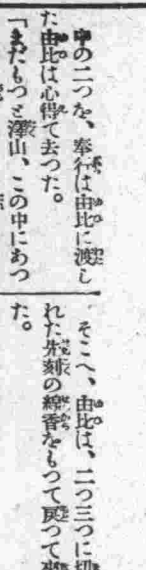 中の二つを、奉行は由比に渡し
た由比は心得て去つた。
「まだもつと澤山、この中にあつ
そこへ、由比は、二つ三つに切
れた先刻の線香をもつて戻つて來
た。